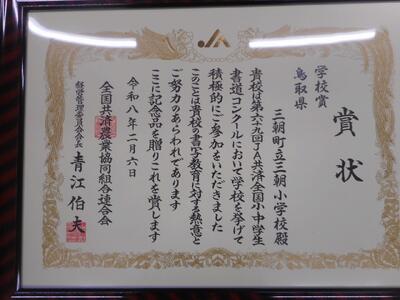 JA
賞状
学校賞
鳥取県
三朝町立三朝小学校殿
貴校は第六十九回JA共済全国小中学生
書道コンクールにおいて学校を挙げて
積極的にご参加をいただきました
このことは貴校の書写教育に対する熱意と
ご努力のあらわれであります
ここに記念品を贈りこれを賞します
令和八年二月六日
全国共済農業協同組合連合会
経営管理委員会会長 青江伯夫